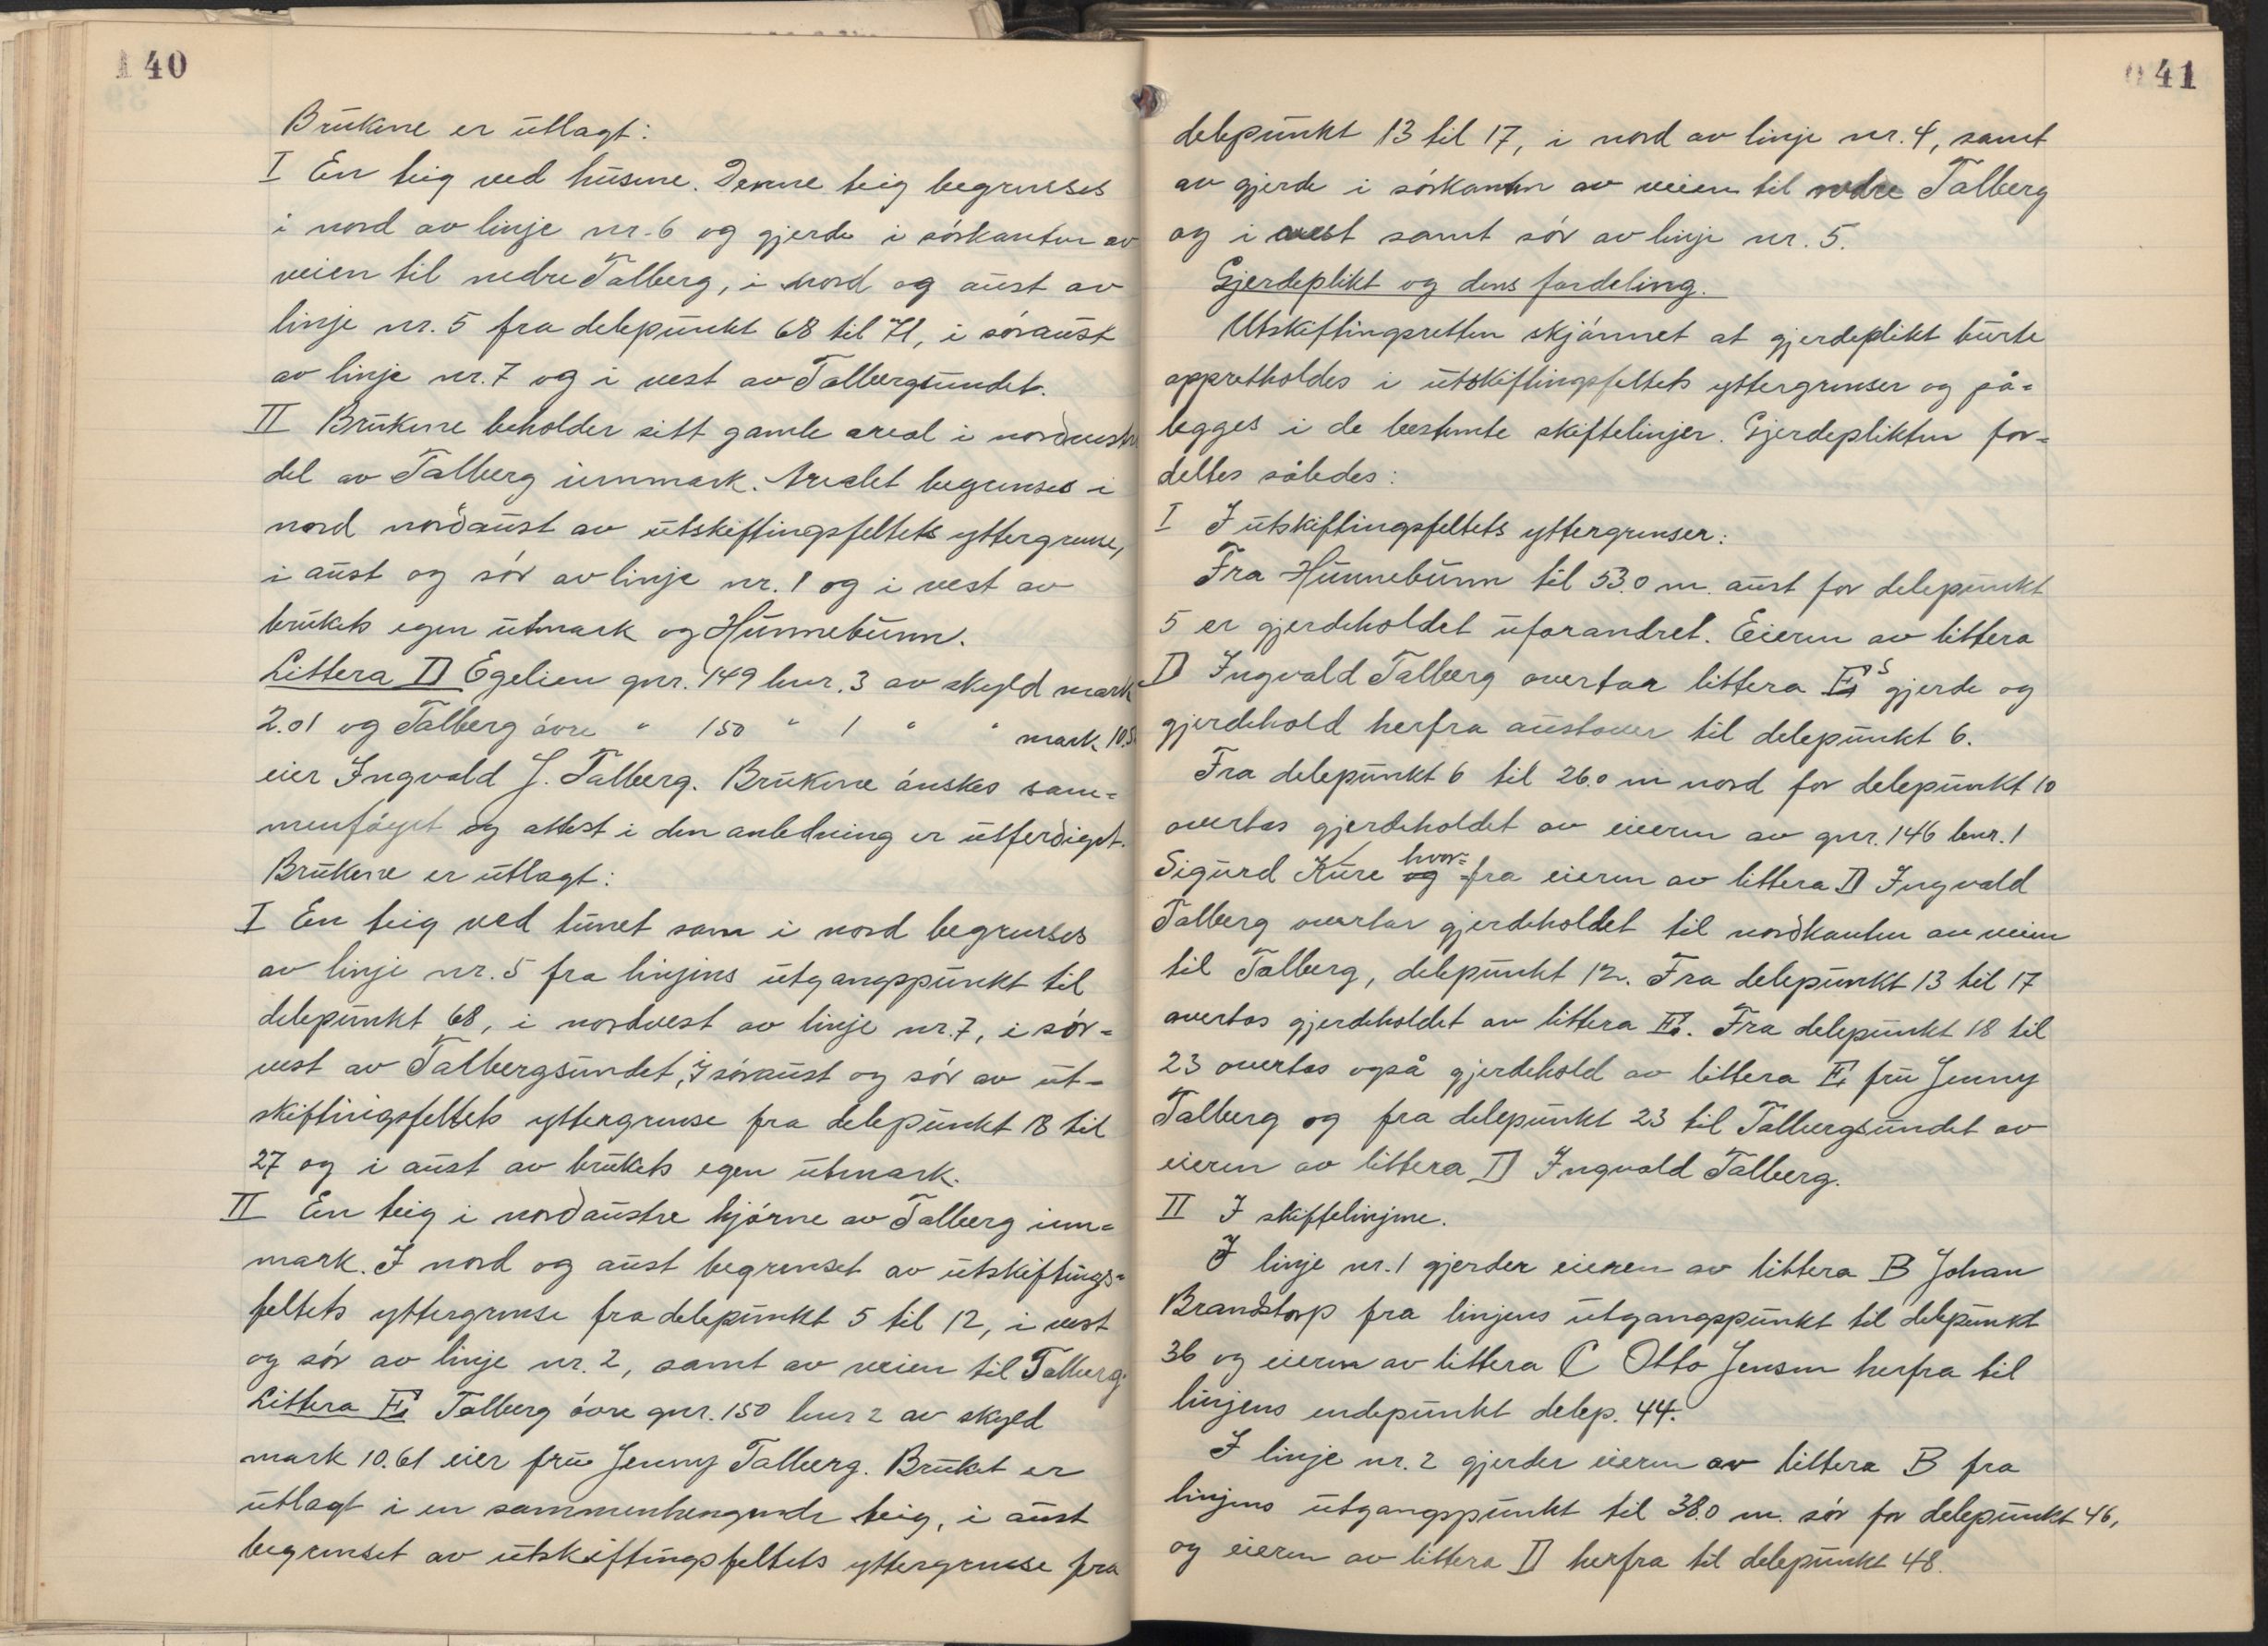 40
Brukene er utlagt:
I En teig ved husene. Denne teig begrenses
i nord av linje nr. 6 og gjerde i sørkanten av
veien til nedre Talberg, i nord og aust av
linje nr. 5 fra delepunkt 68 til 71, i søraust
av linje nr. 7 og i vest av Talbergsundet.
II Brukene beholder sitt gamle areal i nordvestre
del av Talberg innmark. Arealet begrenses i
nord nordaust av utskiftingsfeltets yttergrense,
i aust og sør av linje nr. 1 og i vest av
brukets egen utmark og Hunnebunn.
Littera D Egelien gnr. 149 bnr. 3 av skyld mark
2.01 og Talberg øvre " 150 " 1 " " mark 10.50
eier Ingvald J. Talberg. Brukene ønskes sam=
menføyet og attest i den anledning er utferdiget.
Brukene er utlagt:
I En teig ved tunet som i nord begrenses
av linje nr. 5 fra linjens utgangspunkt til
delepunkt 68, i nordvest av linje nr. 7, i sør=
vest av Talbergsundet, i søraust og sør av ut=
skiftingsfeltets yttergrense fra delepunkt 18 til
27 og i aust av brukets egen utmark.
II En teig i nordaustre hjørne av Talberg inn=
mark. I nord og aust begrenset av utskiftings=
feltets yttergrense fra delepunkt 5 til 12, i vest
og sør av linje nr. 2, samt av veien til Talberg.
Littera E, Talberg øvre gnr. 150 bnr 2 av skyld
mark 10.61 eier fru Jenny Talberg. Bruket er
utlagt i en sammenhengende teig, i aust
begrenset av utskiftingsfeltets yttergrense fra
41
delepunkt 13 til 17, i nord av linje nr. 4, samt
av gjerde i sørkanten av veien til nedre Talberg
og i vest samt sør av linje nr. 5.
Gjerdeplikt og dens fordeling.
Utskiftingsretten skjønnet at gjerdeplikt burte
oppretholdes i utskiftingsfeltets yttergrenser og på=
legges i de bestemte skiftelinjer. Gjerdeplikten for=
deltes således:
I I utskiftingsfeltets yttergrenser:
Fra Hunnebunn til 53.0 m. aust for delepunkt
5 er gjerdeholdet uforandret. Eieren av littera
D Ingvald Talberg overtar littera E,s gjerde og
gjerdehold herfra austover til delepunkt 6.
Fra delepunkt 6 til 26.0 m nord for delepunkt 10
overtas gjerdeholdet av eieren av gnr. 146 bnr. 1
Sigurd Kure og hvor=fra eieren av littera D Ingvald
Talberg overtar gjerdeholdet til nordkanten av veien
til Talberg, delepunkt 12. Fra delepunkt 13 til 17
overtas gjerdeholdet av littera E. Fra delepunkt 18 til
23 overtas også gjerdehold av littera E, fru Jenny
Talberg og fra delepunkt 23 til Talbergsundet av
eieren av littera D Ingvald Talberg.
II I skiftelinjene.
I linje nr. 1 gjerder eieren av littera B Johan
Brandstorp fra linjens utgangspunkt til delepunkt
36 og eieren av littera C Otto Jensen herfra til
linjens endepunkt delep. 44.
I linje nr. 2 gjerder eieren av littera B fra
linjens utgangspunkt til 38.0 m. sør for delepunkt 46,
og eieren av littera D herfra til delepunkt 48.